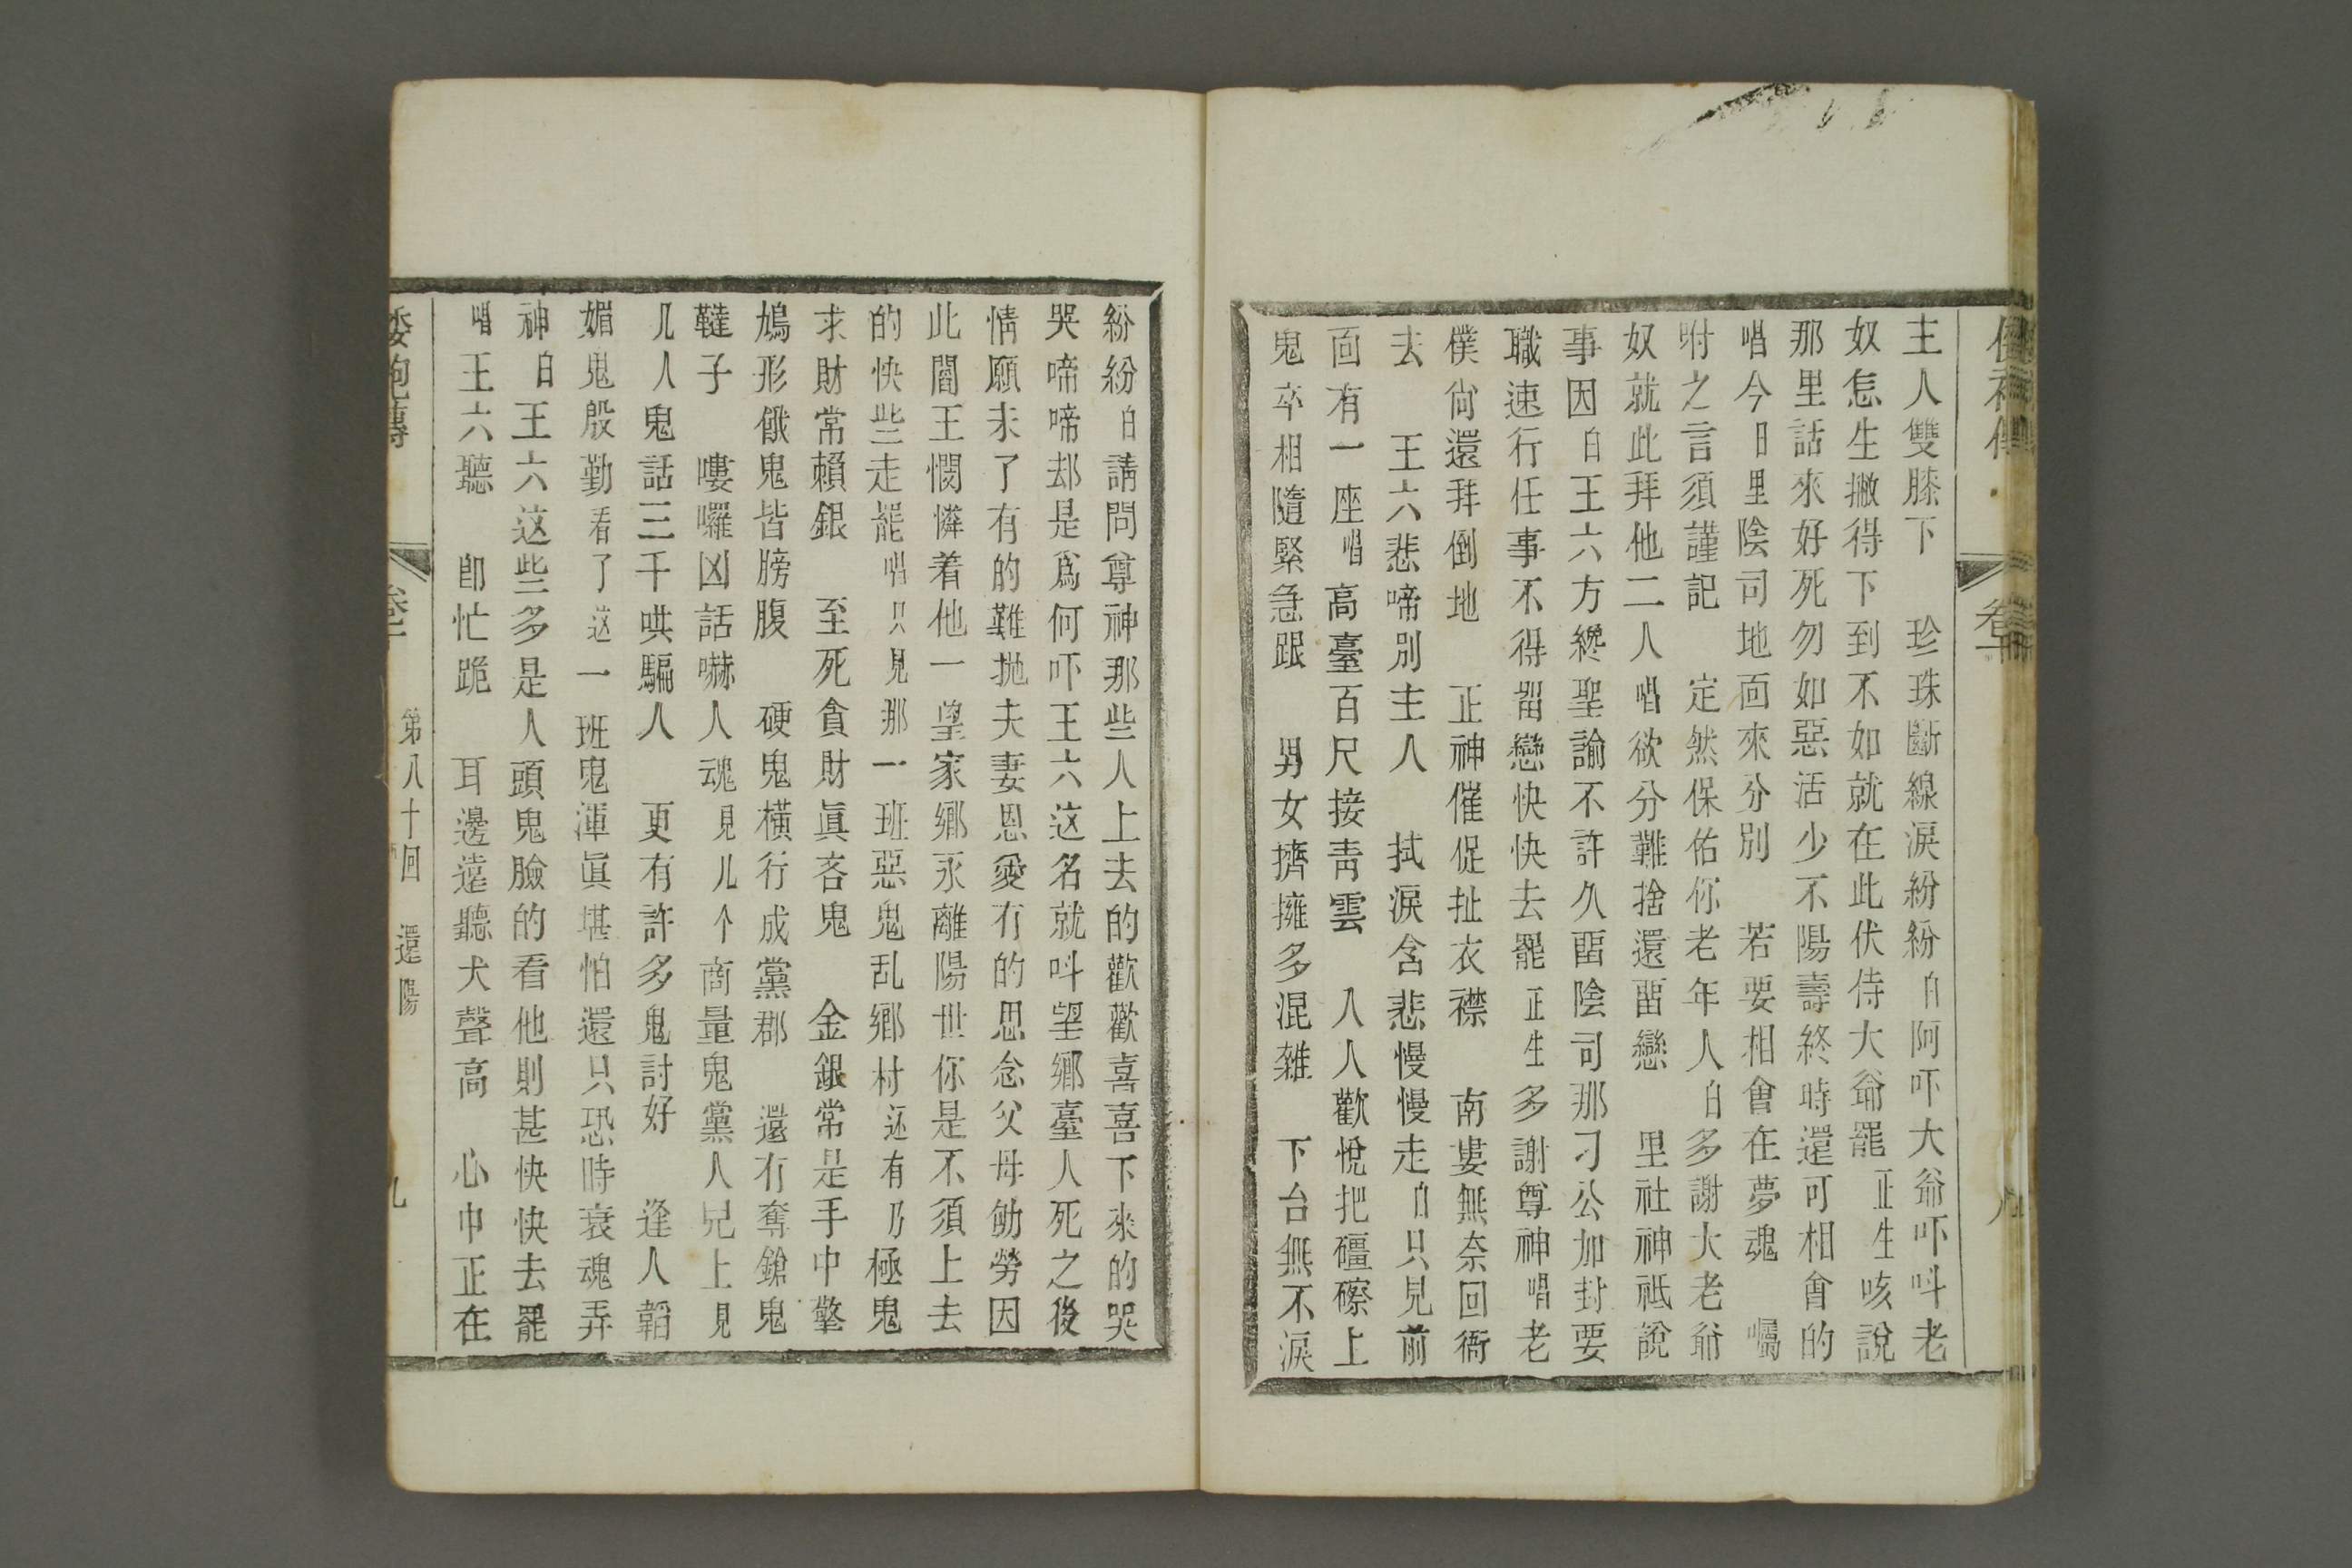 主人雙膝下　珍珠斷線淚紛紛白阿吓大爺吓呌老
奴怎生撇得下到不如就在此伏侍大爺罷正生咳說
那里話來好死勿如惡活少不陽壽終時還可相會的
唱今日里陰司地面來分別　若要相會在夢魂　囑
咐之言須謹記　定然保佑你老年人白多謝大老爺
奴就此拜他二人唱欲分難捨還畱戀　里社神祗說
事因白王六方纔聖諭不許久畱陰司那刁公加封要
職速行任事不得畱戀快快去罷正生多謝尊神唱老
僕尙還拜倒地　正神催促扯衣襟　南婁無奈回衙
去　王六悲啼別主人　拭淚含悲慢慢走白只見前
面有一座唱高臺百尺接靑雲　人人歡悅把礓磜上
鬼卒相隨緊急跟　男女擠擁多混雜　下台無不淚
卷十
紛紛白請問尊神那些人上去的歡歡喜喜下來的哭
哭啼啼却是爲何吓王六这名就呌望鄉臺人死之後
情願未了有的難抛夫妻恩愛有的思念父母劬勞因
此閻王憫憐着他一望家鄉永離陽世你是不須上去
的快些走罷唱只見那一班惡鬼乱鄉村还有乃極鬼
求財常賴銀　至死貪財眞吝鬼　金銀常是手中擎
鳩形餓鬼皆膀腹　硬鬼橫行成黨郡　還有奪鎗鬼
韃子　嘍囉凶話嚇人魂見几个商量鬼黨人兄上見
几人鬼話三千哄騙人　更有許多鬼討好　逢人韜
媚鬼殷勤看了这一班鬼渾眞堪怕還只恐時衰魂弄
神白王六这些多是人頭鬼臉的看他則甚快快去罷
唱王六聽　卽忙跪　耳邊遠聽犬聲高　心中正在
倭袍傳　卷十　第八十回　還陽　九